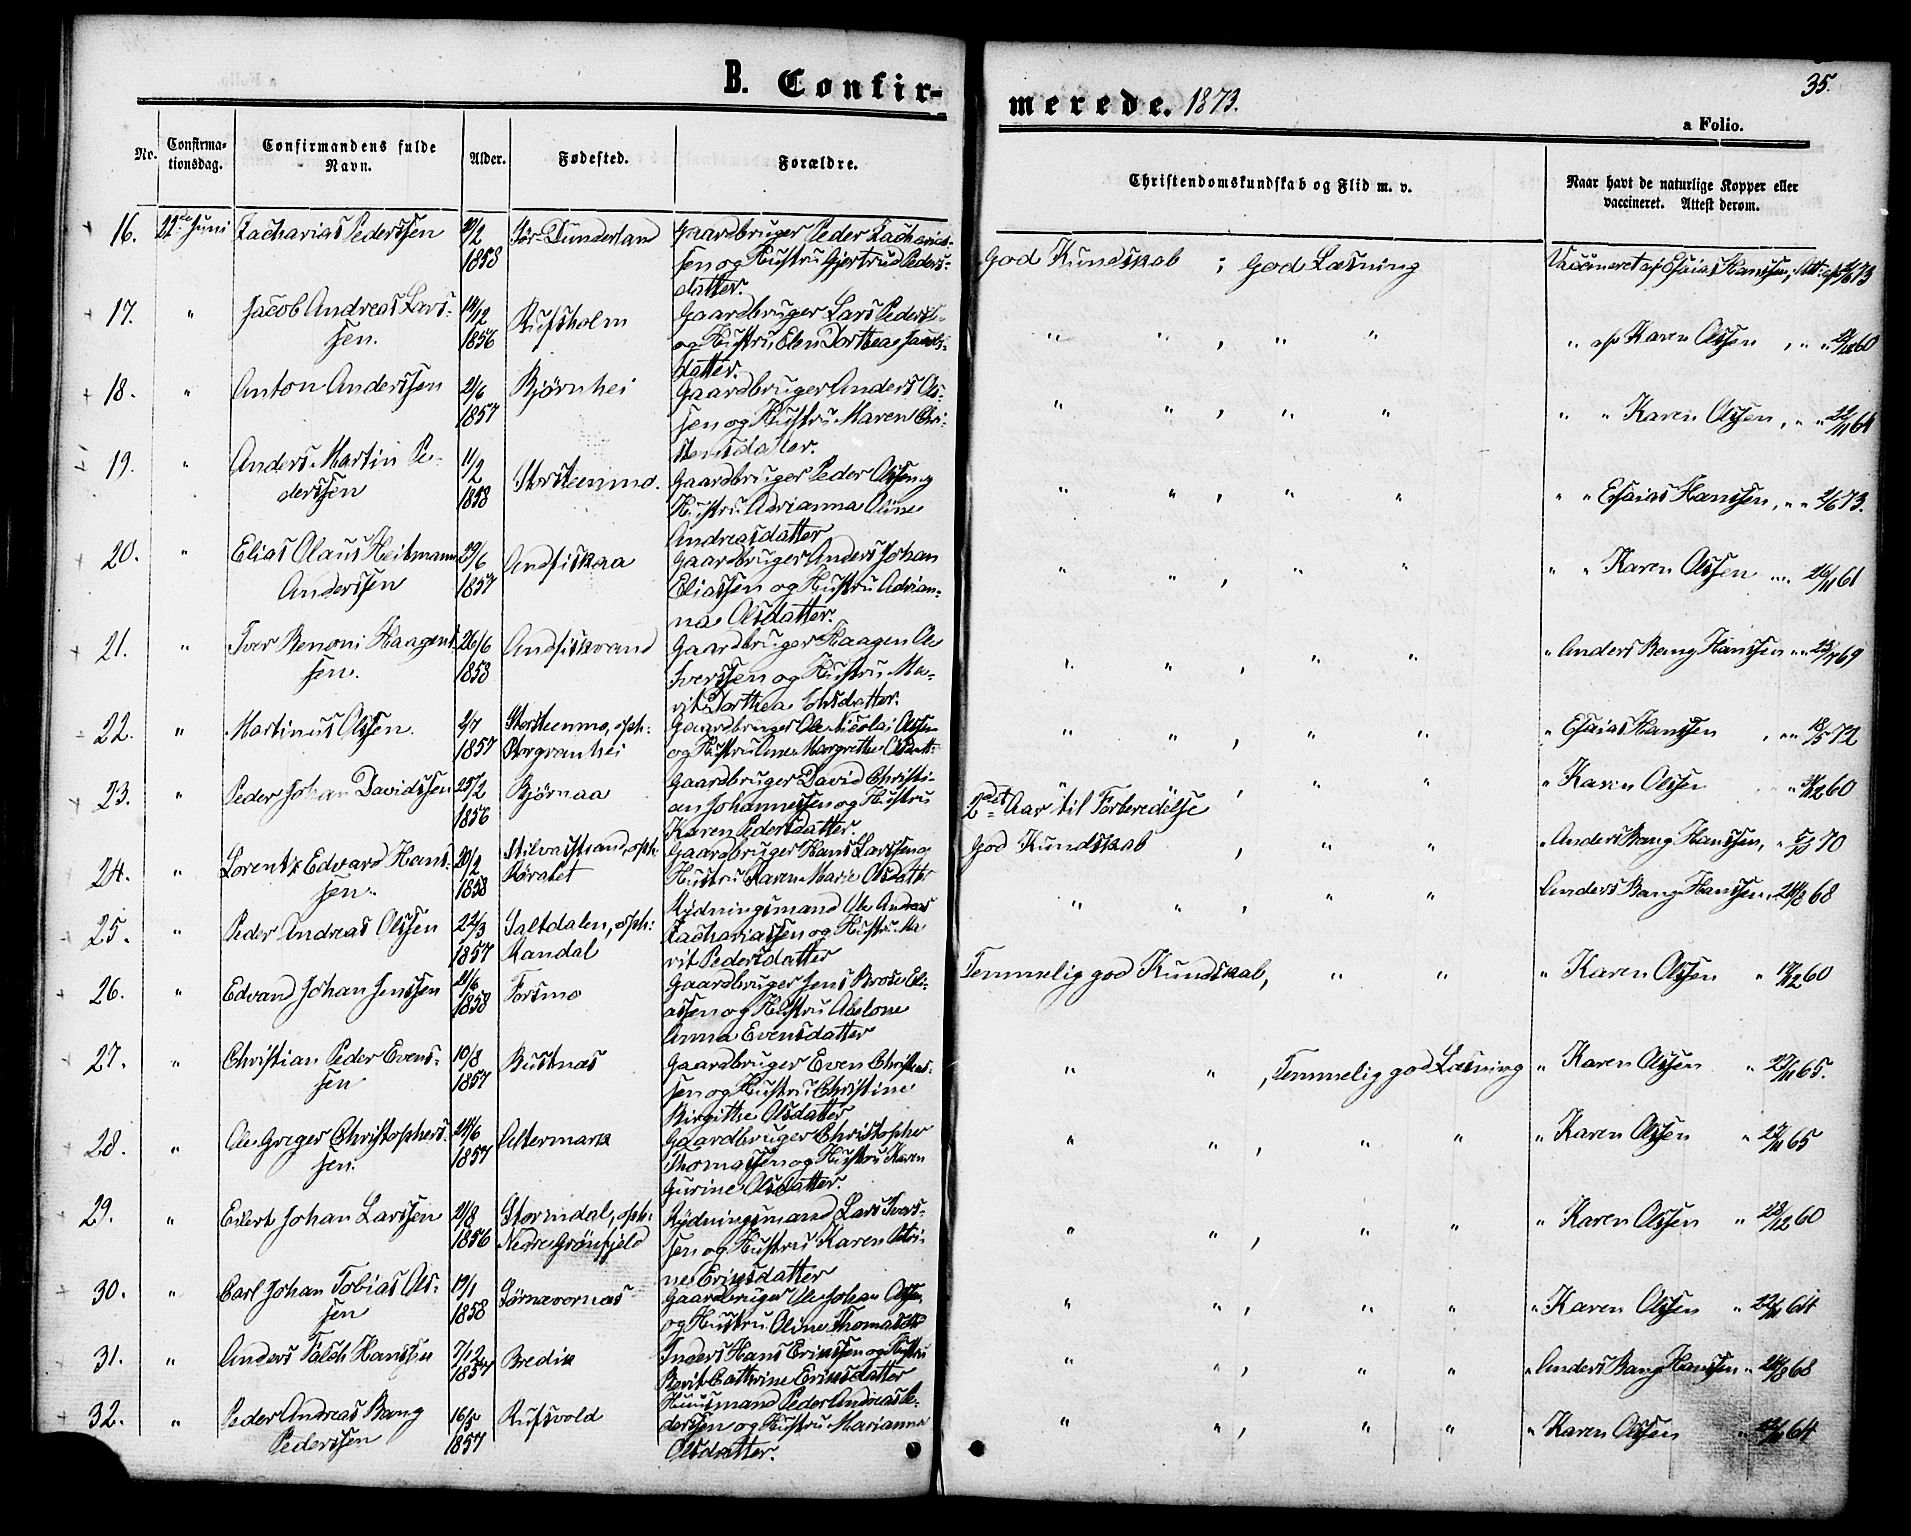 B. Confir-
merede. 1873.
35.
a Folio.
No.
Confirma-
tionsdag.
Confirmandens fulde
Navn.
Alder.
Fødested.
Forældre.
Christendomskundskab og Flid m. v.
Naar havt de naturlige Kopper eller
vaccineret. Attest derom.
16. 22de Juni Zacharias Pederssen Sør-Dunderland Gaardbruger Peder Zacharias-
1858 sen og Hustru Gjertrud Peders-
datter.
God Kundskab ; God Læsning Vaccineret af Esaias Hanssen, Att.
17. " Jacob Andreas Lars- 14/12 Rufsholm Gaardbruger Lars Pederss.
sen. 1856 og Hustru Elen Dorthea Jacobs-
datter.
" " , " " " af Karen Olssen , " "
18. " Anton Anderssen 21/6 Bjørnhei Gaardbruger Anders Ols-
1857 sen og Hustru Maren Chri-
stensdatter.
" " , " " " " Karen Olssen, " " 22/11 64
19. " Anders Martin Pe- 11/2 Storsteenmo. Gaardbruger Peder Olssen og
derssen 1858 Hustru Adrianna Oline
Andreasdatter
" " , " " " " Esaias Hanssen, " " 2/6 73.
20. " Elias Olaus Heitmann 29/6 Andfiskaa Gaardbruger Anders Johan
Anderssen 1857 Eliassen og Hustru Adrian-
na Olsdatter.
" " , " " " " Karen Olssen " " 26/11 61
21. " Iver Benoni Haagens- 26/6 Andfiskvand Gaardbruger Haagen Ole
sen. 1858 Iverssen og Hustru Ma-
rit Dorthea Johsdatter.
" " , " " " Anders Bang Hanssen " " 69
22. " Martinus Olssen. 2/7 Storsteenmo, oph:
1857 Storgranhei
Gaardbruger Ole Nicolai Olssen
og Hustru Ane Margrethe Olsdatt:
" " , " " " Esaias Hanssen , " " 18/5 72
23. " Peder Johan Davidssen 25/2 Bjørnaa Gaardbruger David Christi-
1856 an Johannessen og Hustru
Karen Pedersdatter.
" " , " " " Karen Olssen " 60
2det Aar til Forberedelse
24. " Lorentz Edvard Hans- 20/2 Stilvasstrand, oph:
sen. 1858 Røvatet
Gaardbruger Hans Larssen og
Hustru Karen Marie Olsdatter
God Kundskab , " " " Anders Bang Hanssen, " 70
25. " Peder Andreas Olssen 22/3 Saltdalen, oph:
1857 Randal
Rydningsmand Ole Andreas
Zachariassen og Hustru Ma-
rit Pedersdatter
" " , " " Anders Bang Hanssen " 24/8 68
26. " Edvard Johan Jenssen 21/6 Forsmo Gaardbruger Jens Brose Eli-
1858 assen og Hustru Abelone
Anna Evensdatter
Temmelig god Kundskab, " " " Karen Olssen " 17/12 60
27. " Christian Peder Evens- 10/8 Bustnæs Gaardbruger Even Christens-
sen 1857 sen og Hustru Christine
Birgithe Olsdatter
" " , Temmelig god Læsning " Karen Olssen " 27/11 65.
28. " Ole Greger Christophers- 24/6 Altermark Gaardbruger Christopher
sen. 1857 Thomassen og Hustru Karen
Gurine Olsdatter.
" " , " " " Karen Olssen " 27/11 65
29. " Eilert Johan Larssen 21/8 Stormdal, oph:
1856 Nedre Grønfjeld
Rydningsmand Lars Ivers-
sen og Hustru Karen Petri-
ne Eriksdatter
" " , " " " Karen Olssen " 28/12 60
30. " Carl Johan Tobias Ols- 19/1 Sørnævernæs Gaardbruger Ole Johan Olssen
sen 1858 og Hustru Oline Thomasdtr
" " , " " " Karen Olssen " 22/11 64
31. " Anders Falch Hanssen 7/12 Bredik Inders Hans Erikssen og Hustru
1857 Berit Cathrine Eriksdatter
" " , " " " Anders Bang Hanssen " 24/8 68
32. " Peder Andreas Bang 16/5 Rufsvold Huusmand Peder Andreas Pe-
Pederssen 1857 derssen og Hustru Marianna
Olsdatter.
" " , " " " Karen Olssen " 64